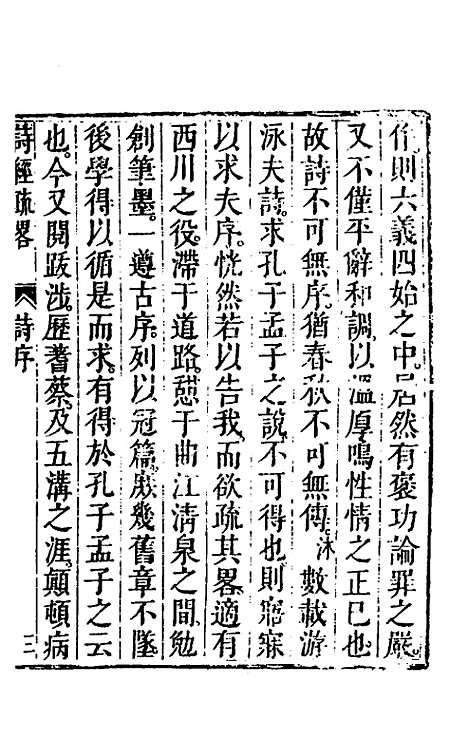 作則六義四始之中居然有褒功論罪之嚴
又不僅平辭和調以溫厚鳴性情之正已也
故詩不可無序猶春秋不可無傳沐數載游
泳夫詩求孔子孟子之說不可得也則寤寐
以求夫序恍然若以告我而欲疏其畧適有
西川之役滯于道路憇于曲江清泉之間勉
創筆墨一遵古序列以冠篇庶幾舊章不墜
後學得以循是而求有得於孔子孟子之云
也今又閱跋涉歷蓍蔡及五溝之涯顛頓病
詩經疏畧 詩序 三